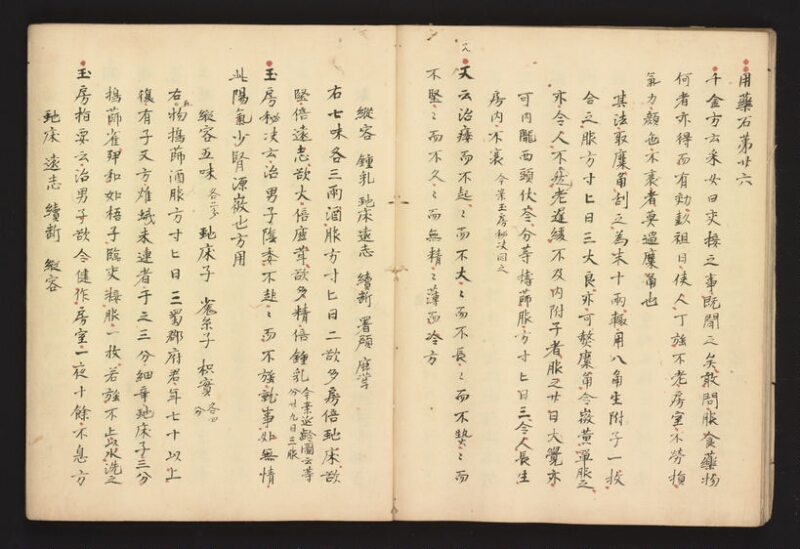 用藥石第廿六
千金方云采女曰交接之事既聞之矣敢問服食藥物
何者亦得而有効彭祖曰使人丁強不老房室不勞損
氣力顔色不衰者莫過麋角也
其法取麋角刮之為末十兩輙用八角生附子一枚
合之服方寸匕日三大良亦可熬麋角令微黄單服之
亦令人不老遅緩不及内附子者服之廿日大覺亦
可内隴西頭伏苓分等擣篩服方寸匕日三令人長生
房内不衰 今案玉房秘决同之
又云治痿而不起〻而不大〻而不長〻而不熱〻而
不堅〻而不久〻而無精〻薄而冷方
縱容 鍾乳 虵床 遠志 續斷 署預 鹿茸
右七味各三兩酒服方寸匕日二欲多房倍虵床欲
堅倍遠志欲大倍鹿茸欲多精倍鍾乳 今案延齡圖云等分廿九日三服
玉房秘决云治男子陰委不起〻而不強就事如無情
此陽氣少腎源微也方用
縱容五味 各二分 虵床子 菟絲子 枳實 各四分
右五物擣篩酒服方寸匕日三蜀郡府君年七十以上
復有子又方雄蛾未連者干之三分細辛虵床子三分
擣篩雀卵和如梧子臨交接服一枚若強不止以水洗之
玉房指要云治男子欲令健作房室一夜十餘不息方
虵床 遠志 續斷 縱容